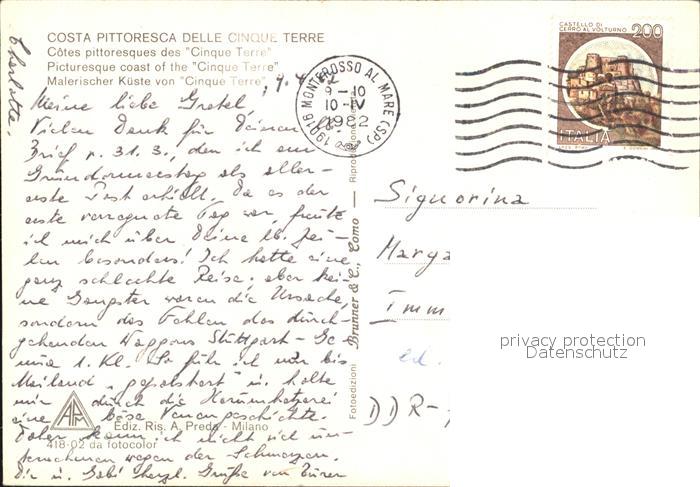 COSTA PITTORESCA DELLE CINQUE TERRE
Côtes pittoresques des "Cinque Terre"
Picturesque coast of the "Cinque Terre"
Malerischer Küste von "Cinque Terre"
Meine liebe Gretel,
Vielen Dank für Deinen
Brief v. 31.3., den ich am
Gründonnerstag als aller-
erste Post erhielt. Da es der
erste verregnete Tag war, freute
ich mich über Deine lb. Zei-
len besonders! Ich hatte eine
ganz schlechte Reise; aber kei-
ne Gangster waren die Ursache,
sondern das Fehlen des durch-
gehenden Waggons Stuttgart - Ge-
nua 1. Kl. So fuhr ich nur bis
Mailand u. holte
mir durch die
eine böse
Daher kann ich nicht viel un-
ternehmen wegen der Schmerzen.
Dir u. Gabi herzl. Grüße von Eurer
Charlotte.
APM
Ediz. Ris. A. Preda - Milano
418-02 da fotocolor
Fotoedizioni Brunner & C., Como — Riproduzione
19016 MONTEROSSO AL MARE (SP)
9-10
10-IV
1982
CASTELLO DI
CERRO AL VOLTURNO
200
ITALIA
Signorina
Marga
Imm
DDR-
privacy protection
Datenschutz